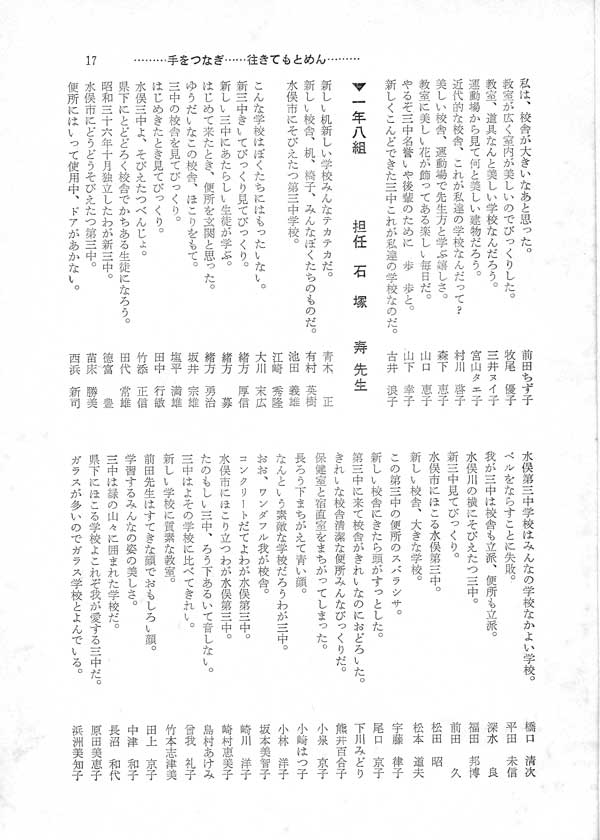 17 ………手をつなぎ……往きてもとめん………
私は、校舎が大きいなあと思った。 前田ちず子
教室が広く室内が美しいのでびっくりした。 牧尾 優子
教室、道具なんと美しい学校なんだろう。 三井ヌイ子
運動場から見て何と美しい建物だろう。 宮山タニ子
近代的な校舎、これが私達の学校なんだって? 村川 啓子
美しい校舎、運動場で先生方と学ぶ嬉しさ。 森下 恵子
教室に美しい花が飾ってある楽しい毎日だ。 山口 恵子
やるぞ三中名誉いや後輩のために 歩 歩と。 山下 幸子
新しくこんどできた三中これが私達の学校なのだ。 古井 浪子
▼一年八組 担任 石塚 寿 先生
新しい机新しい学校みんなテカテカだ。 青木 正
新しい校舎、机、椅子、みんなぼくたちのものだ。 有村 英樹
水俣市にそびえたつ第三中学校。 池田 義雄
こんな学校はぼくたちにはもったいない。 江崎 秀隆
新三中きいてびっくり見てびっくり。 大川 末広
新しい三中にあたらしい生徒が学ぶ。 緒方 厚信
はじめて来たとき、便所を玄関と思った。 緒方 募
ゆうだいなこの校舎、ほこりをもて。 緒方 勇治
三中の校舎を見てびっくり。 坂井 宗雄
はじめきたとき見てびっくり。 塩平 満雄
水俣三中よ、そびえたつべんじょ。 田中 行敏
県下にとどろく校舎でかちある生徒になろう。 竹添 正信
昭和三十六年十月独立したわが新三中。 田代 常雄
水俣市にどうどうそびえたつ第三中。 徳富 豊
便所にはいって使用中、ドアがあかない。 苗床 勝美
西浜 新司
水俣第三中学校はみんなの学校なかよい学校。 橋口 清次
ベルをならすことに失敗。 平田 未信
水俣川の横にそびえたつ三中。 深水 良
我が三中は校舎も立派、便所も立派。 福田 邦博
新三中見てびっくり。 前田 久
水俣市にほこる水俣第三中。 松田 昭
新しい校舎、大きな学校。 松本 道夫
この第三中の便所のスバランサ。 宇藤 律子
新しい校舎にきたら頭がすっとした。 尾口 京子
第三中に来て校舎がきれいなのにおどろいた。 下川みどり
きれいな校舎清潔な便所みんなびっくりだ。 熊井百合子
保健室と宿直室をまちがってしまった。 小泉 京子
長ろう下まちがえて青い顔。 小崎はつ子
なんという素敵な学校だろうわが三中。 小林 洋子
おお、ワンダフル我が校舎。 坂本美智子
コンクリートだてよわが水俣第三中。 崎川 洋子
水俣市にほこり立つわが水俣第三中。 崎村恵美子
たのもしい三中、ろう下あるいて音しない。 島村あけみ
三中はよその学校に比べてきれい。 曾我 礼子
新しい学校に質素な教室。 竹本志津美
前田先生はすてきな顔でおもしろい顔。 田上 京子
学習するみんなの姿の美しさ。 中津 和子
三中は緑の山々に囲まれた学校だ。 長沼 和代
県下にほこる学校よこれぞ我が愛する三中だ。 原田美恵子
ガラスが多いのでガラス学校とよんでいる。 浜洲美知子